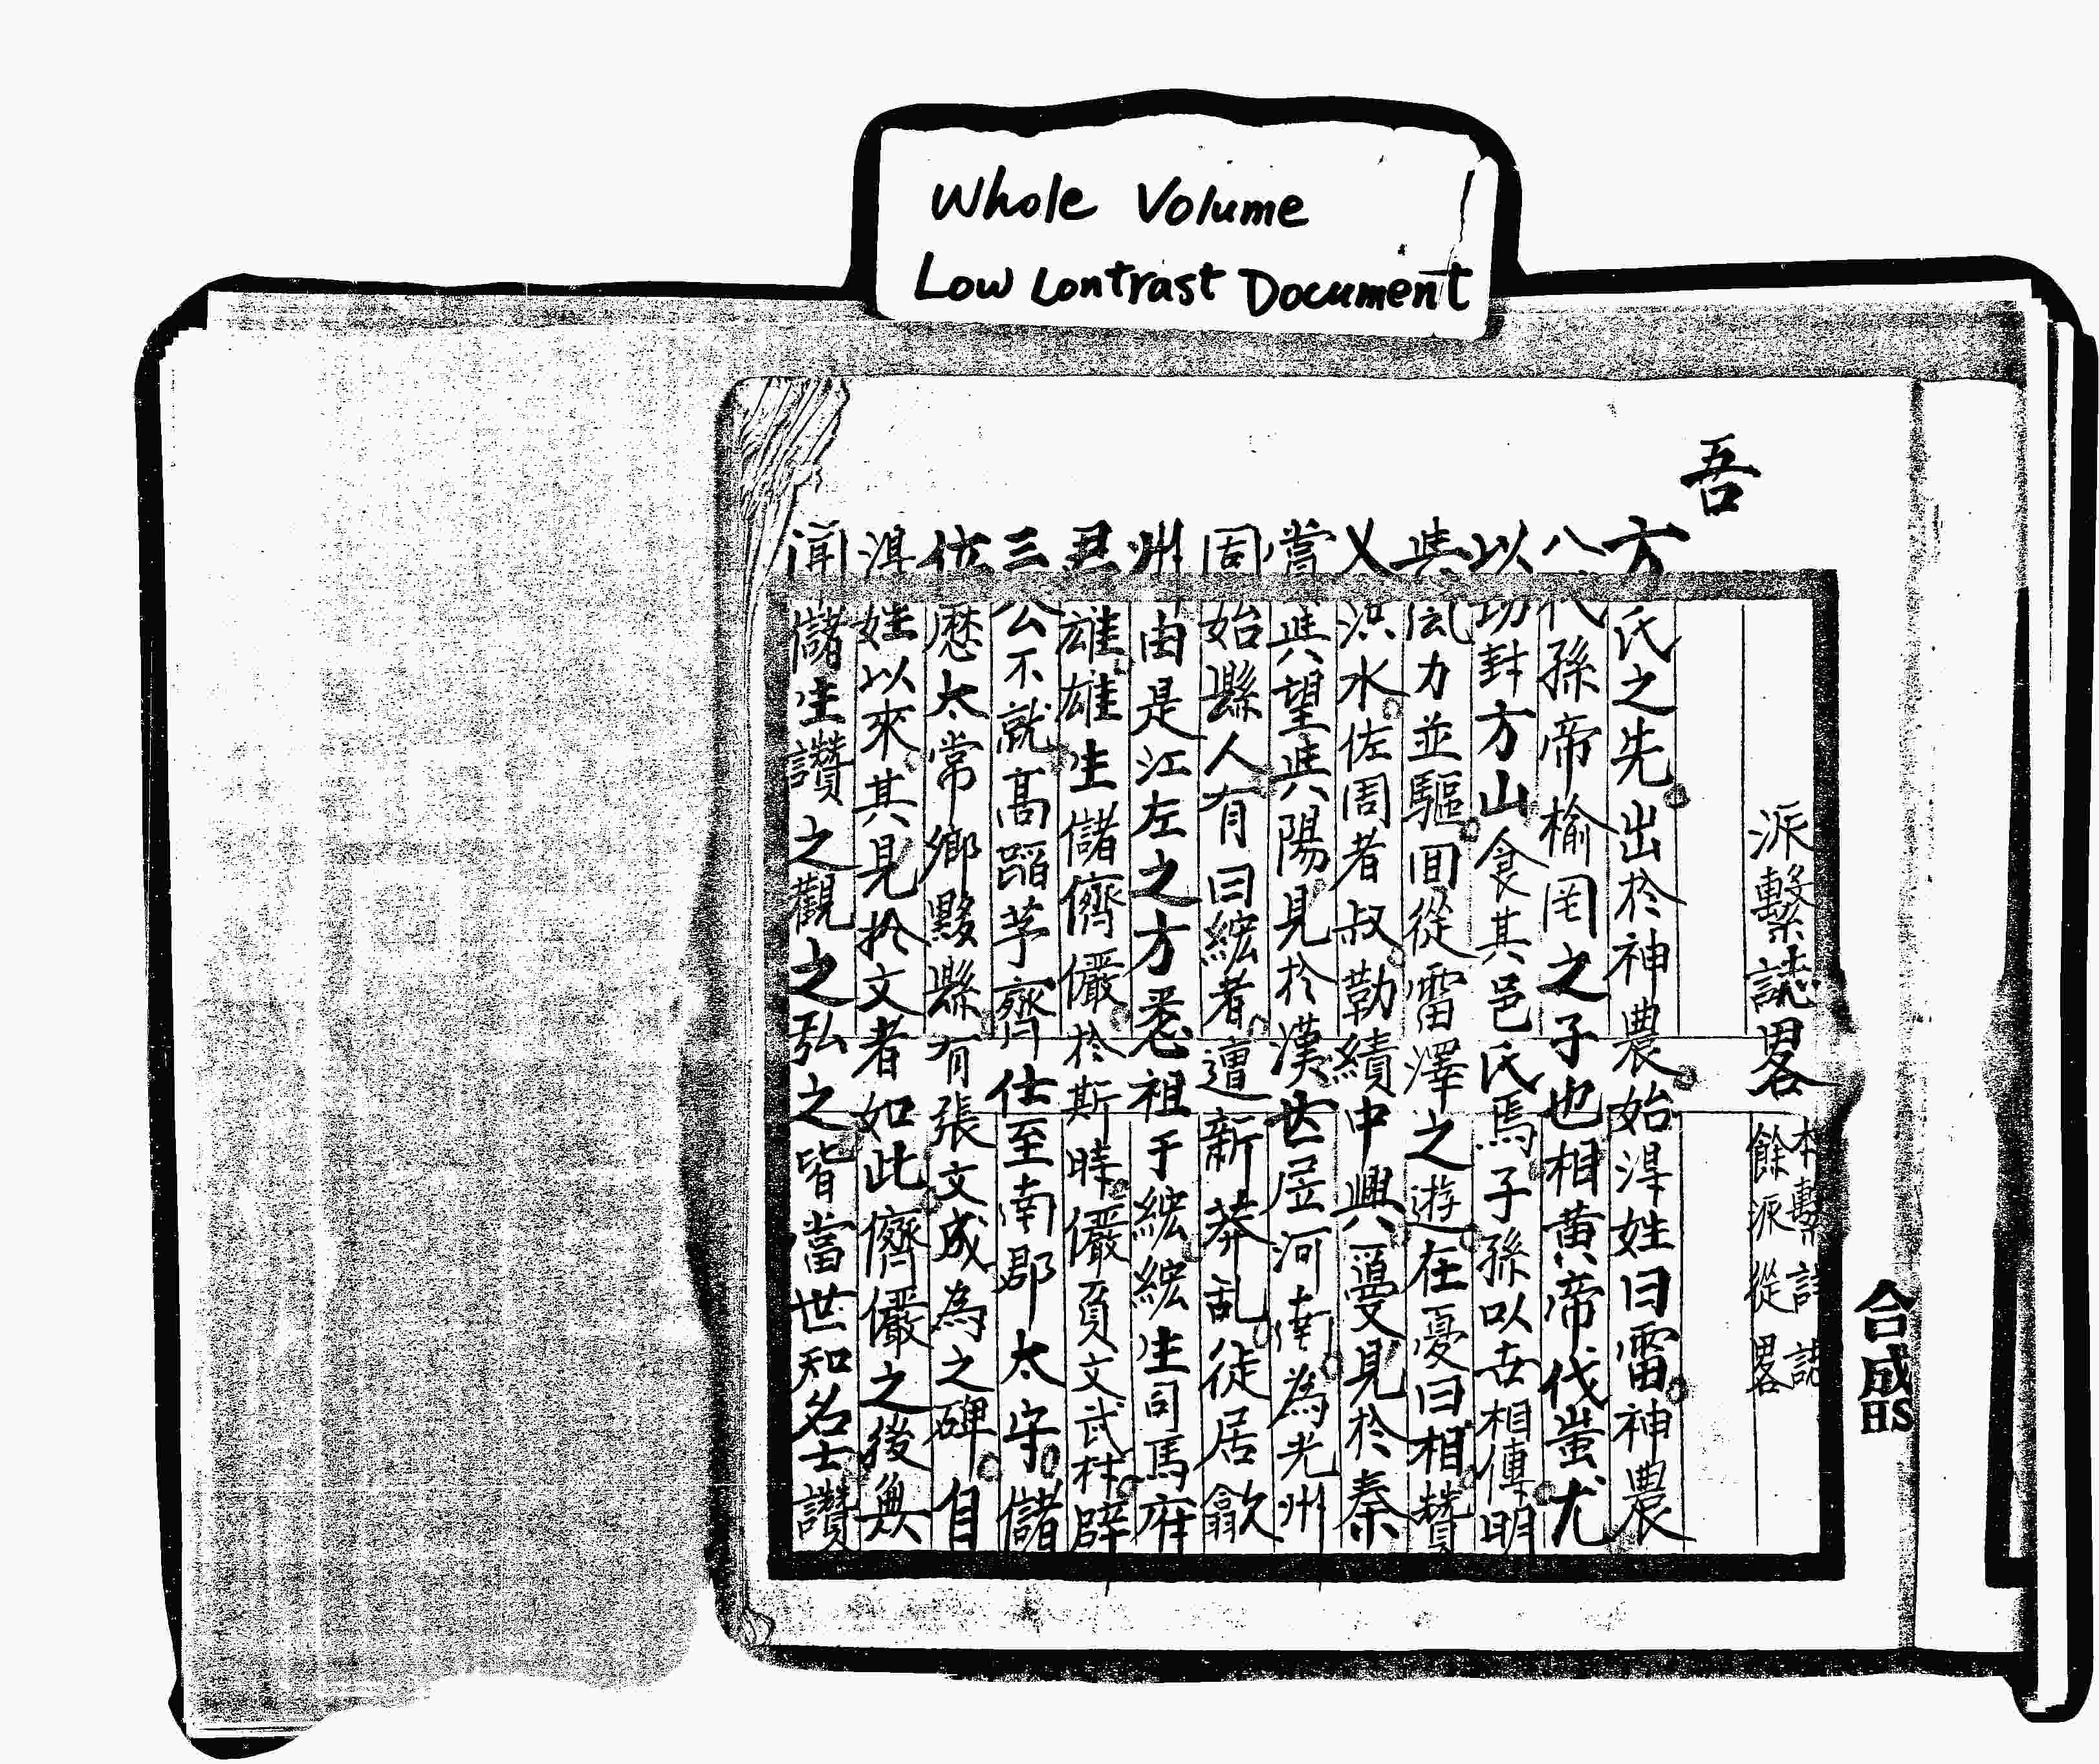 Whole Volume
Low Contrast Document
派繫誌畧 本繫註誌 餘派從畧
吾
方氏之先出於神農始淂姓曰雷神農
八代孫帝榆罔之子也相黄帝伐蚩尤
以功封方山食其邑氏焉子孫以世相傳明
興風力並驅囬從雷澤之遊在憂曰相賛
乂洪水佐周者叔勒績中興㪅見於秦
嘗興望興陽見於漢世居河南為光州
固始縣人有曰綋者遭新莽乱徒居歙
州由是江左之方悉祖于綋綋生司馬府
君雄雄生儲儕儼於斯時儼負文武材辟
三公不就高蹈芋齊仕至南郡太守儲
位歷太常鄉黟縣有張文成為之碑自
淂姓以來其見扵文者如此儕儼之後無
聞儲生讚之觀之弘之皆當世知名士讚
合成HS